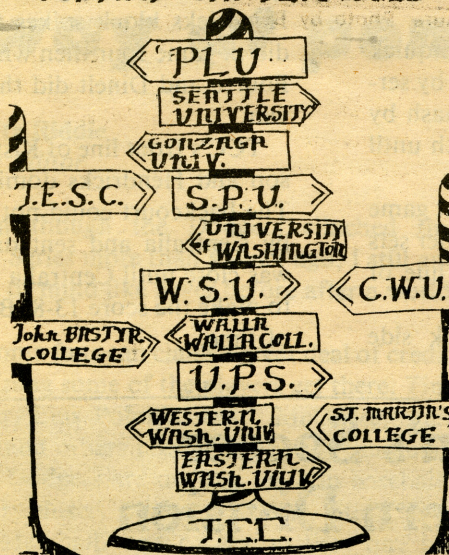 PLU
SEATTLE
UNIVERSITY
GONZAGA
UNIV.
T.E.S.C.
S.P.U.
UNIVERSITY
of WASHINGTON
W.S.U.
C.W.U.
John BASTYR
COLLEGE
WALLA
WALLA COLL.
U.P.S.
WESTERN
WASH. UNIV
ST. MARTIN'S
COLLEGE
EASTERN
WASH. UNIV
T.C.C.